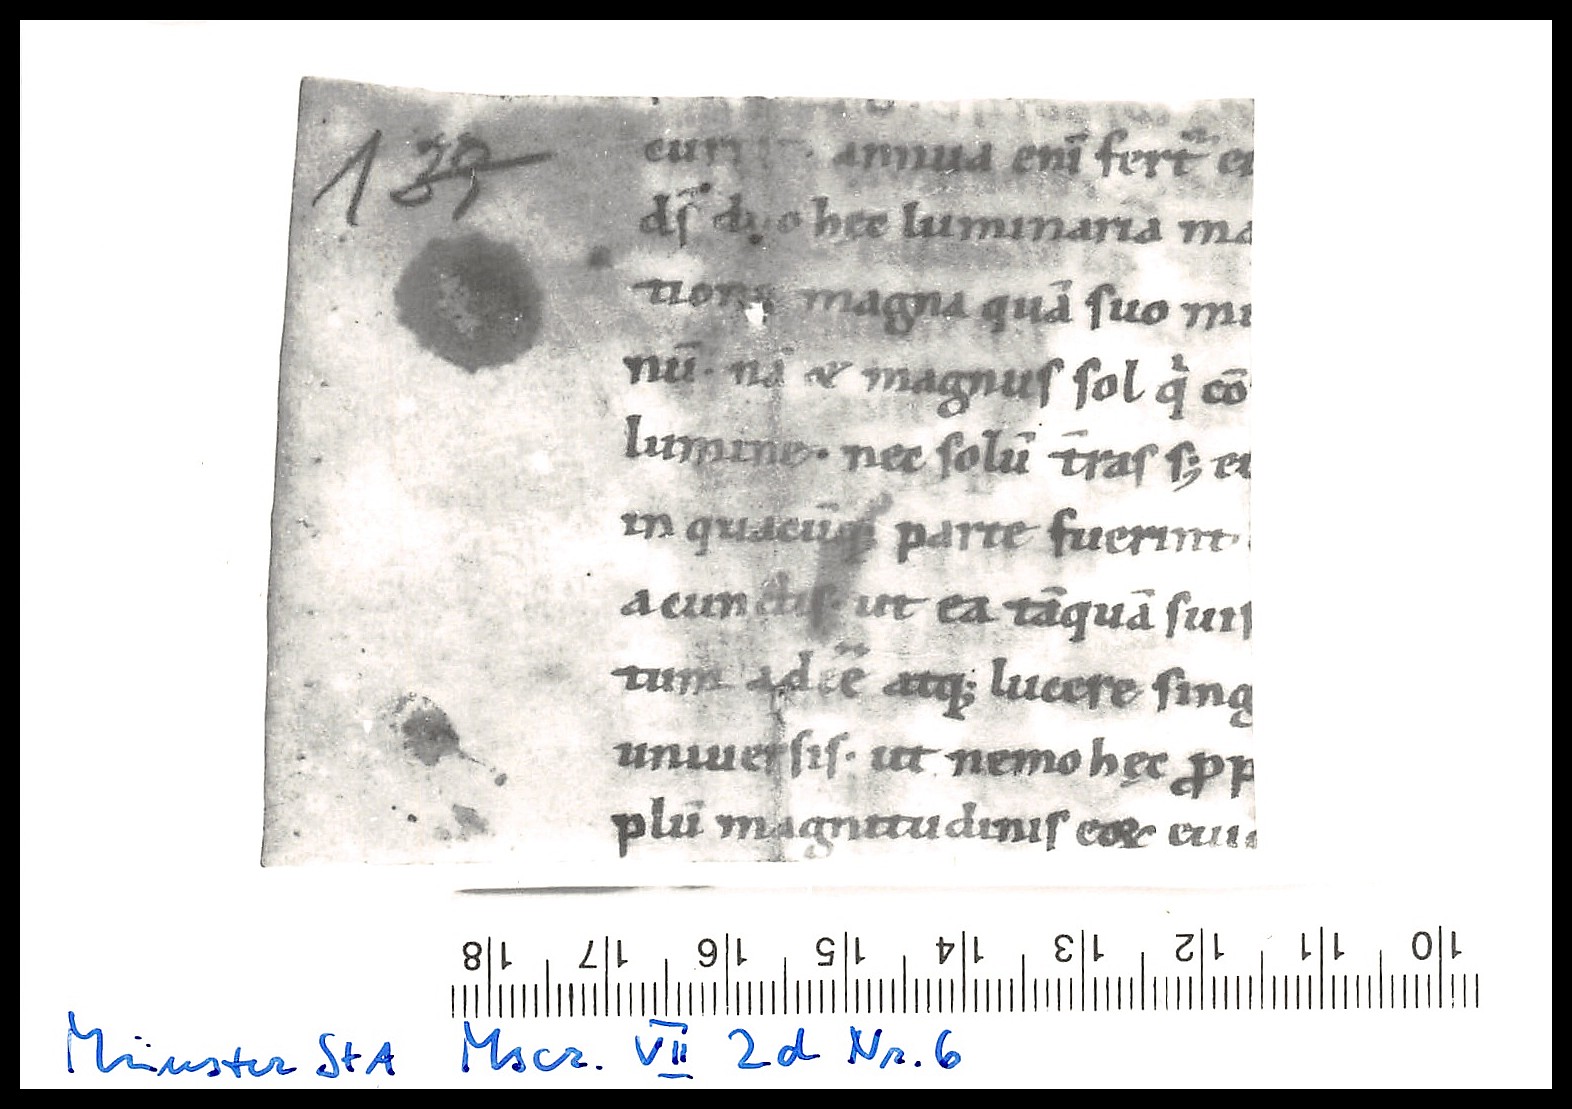 annua enī fert̄
ds̄ duo hęc luminaria ma
magna quā suo mi
nū· nā & magnus sol q̇ cō
lumine· nec solū t̄ras s; et
in quacūq; parte fuerint·
a cunctis· ut ea tāquā suis
tum adēē atq; lucere sing
uniuersis· ut nemo hęc ꝓp
plū magnitudinis eoꝝ
18 17 16 15 14 13 12 11 10
Münster StA Mscr. VII 2d Nr. 6